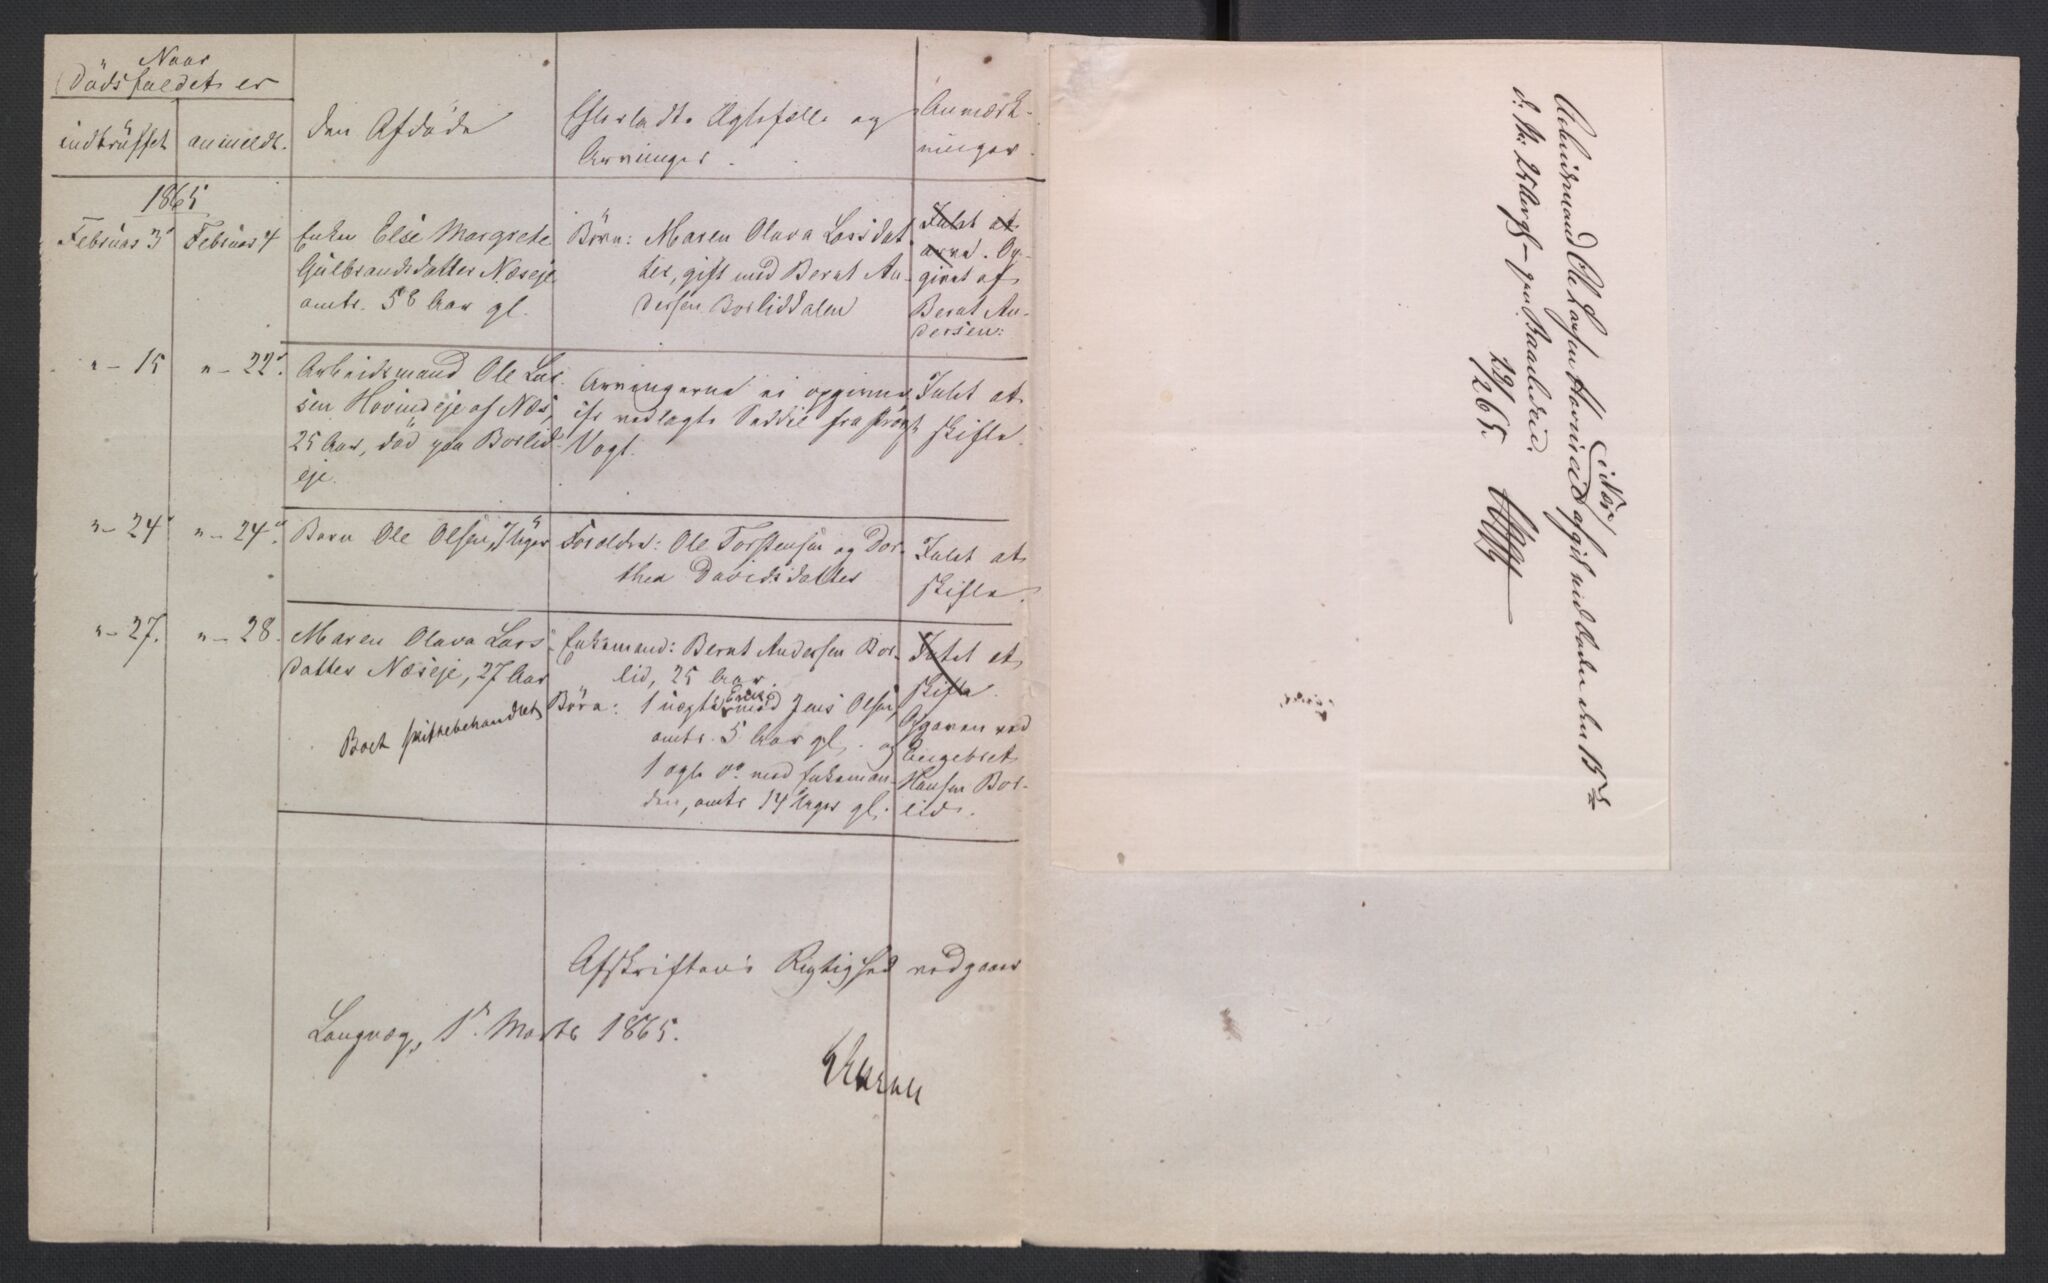 Naar
Dødsfaldet er
indtruffet
anmeldt.
den Afdøde
Efterladte Ægtefælle og
Arvinger.
Anmærk-
ninger.
1865
Februar 3
Februar 4
Enke Else Margrete
Gulbrandsdatter Næseje
omtr. 58 Aar gl.
Børn: Maren Olava Larsdat
ter, gift med Bernt An-
dersen Borliddalen
Intet at
arve. Op-
givet af
Bernt An-
dersen:
" — 15
" — 22.
Arbeidsmand Ole Lar-
sen Hovindeje af Næs,
25 Aar, død paa Borlid-
eje.
Arvingerne ei opgivne
cfr vedlagte Seddel fra Prövst
Vogt.
Intet at
skifte.
" — 24
" — 24.
Barn Ole Olsen, 7 Uger
Foreldre: Ole Torstensen og Dor-
thea Davidsdatter
Intet at
skifte.
" — 27.
" — 28.
Maren Olava Lars
datter Næseje, 27 Aar
Boet skiftebehandlet
Enkemand: Bernt Andersen Bor-
lid, 25 Aar.
Børn: 1 uægte med Jens Olsen,
omtr. 5 Aar gl. og
1 ægte do med Enkeman-
den, omtr 14 Uger gl.
Intet at
skifte.
Opgaven ved
Engebret
Hansen Bor-
lid.
Afskriftens Rigtighed vedgaaes
Langvæg, 1. Marts 1865.
Arbeidsmand Ole Larsen Hovindeid afgik ved Døden den 15de
d. M. 25 Aar gl — paa Baarlideid.
29/2 65.